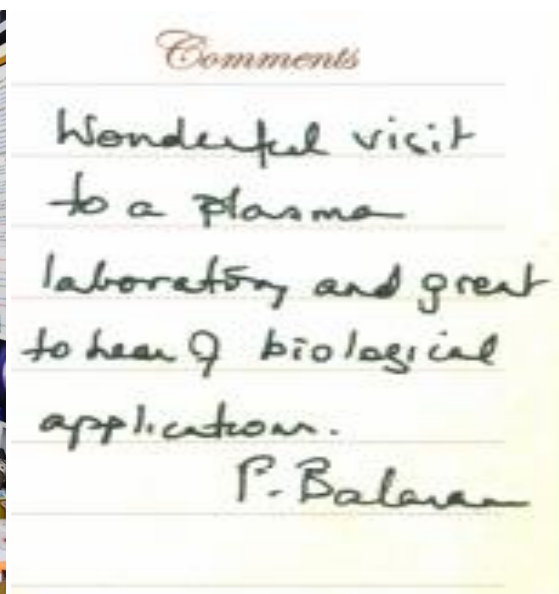 Comments
Wonderful visit
to a plasma
laboratory and great
to hear of biological
applications.
P. Balaram